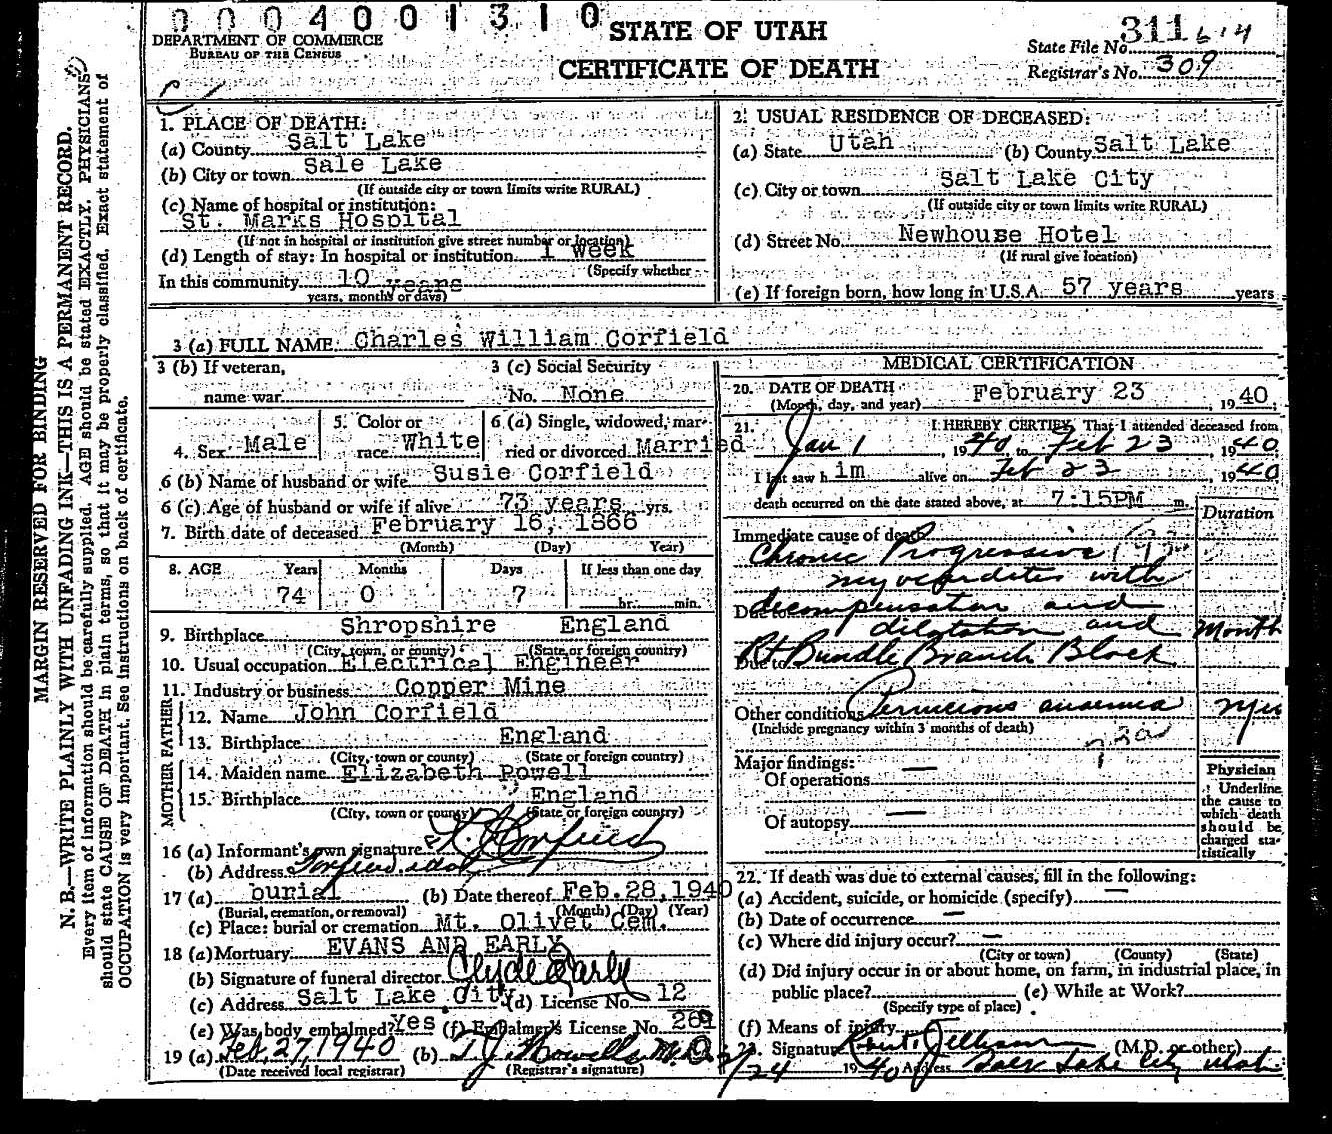 0004001310
DEPARTMENT OF COMMERCE
BUREAU OF THE CENSUS
STATE OF UTAH
CERTIFICATE OF DEATH
State File No. 311 614
Registrar's No. 309
MARGIN RESERVED FOR BINDING
N. B.—WRITE PLAINLY WITH UNFADING INK—THIS IS A PERMANENT RECORD.
Every item of information should be carefully supplied. AGE should be stated EXACTLY. PHYSICIANS
should state CAUSE OF DEATH in plain terms, so that it may be properly classified. Exact statement of
OCCUPATION is very important. See instructions on back of certificate.
1. PLACE OF DEATH:
(a) County Salt Lake
(b) City or town Sale Lake
(If outside city or town limits write RURAL)
(c) Name of hospital or institution:
St. Marks Hospital
(If not in hospital or institution give street number or location)
(d) Length of stay: In hospital or institution 1 week
(Specify whether
In this community 10 years
years, months or days)
2. USUAL RESIDENCE OF DECEASED:
(a) State Utah (b) County Salt Lake
(c) City or town Salt Lake City
(If outside city or town limits write RURAL)
(d) Street No. Newhouse Hotel
(If rural give location)
(e) If foreign born, how long in U.S.A. 57 years years
3 (a) FULL NAME: Charles William Corfield
3 (b) If veteran,
name war
3 (c) Social Security
No. None
4. Sex Male
5. Color or
race White
6 (a) Single, widowed, mar-
ried or divorced Married
6 (b) Name of husband or wife Susie Corfield
6 (c) Age of husband or wife if alive 73 years yrs.
7. Birth date of deceased February 16, 1866
(Month) (Day) Year)
8. AGE Years Months Days If less than one day
74 0 7 hr. min.
9. Birthplace Shropshire England
(City, town, or county) (State or foreign country)
10. Usual occupation Electrical Engineer
11. Industry or business Copper Mine
FATHER
12. Name John Corfield
13. Birthplace England
(City, town or county) (State or foreign country)
MOTHER
14. Maiden name Elizabeth Powell
15. Birthplace England
(City, town or county) (State or foreign country)
16 (a) Informant's own signature Corfield
(b) Address
17 (a) burial (b) Date thereof Feb.28,1940
(Burial, cremation, or removal) (Month) (Day) (Year)
(c) Place: burial or cremation Mt. Olivet Cem.
18 (a) Mortuary EVANS AND EARLY
(b) Signature of funeral director Clyde Early
(c) Address Salt Lake City (d) License No. 12
(e) Was body embalmed? Yes (f) Embalmer's License No.
19 (a) Feb. 27, 1940 (b) T. J. Howells M.D.
(Date received local registrar) (Registrar's signature)
MEDICAL CERTIFICATION
20. DATE OF DEATH February 23, 1940
(Month, day, and year)
21. I HEREBY CERTIFY, That I attended deceased from
Jan 1, 1940, to Feb 23, 1940
I last saw him alive on Feb 23, 1940
death occurred on the date stated above, at 7:15PM m.
Duration
Immediate cause of death
Chronic Progressive
myocarditis with
Due to decompensation and
dilatation and Month
Due to Rt Bundle Branch Block
Other conditions Pernicious anaemia yrs
(Include pregnancy within 3 months of death)
73a
Major findings:
Of operations —
Of autopsy —
Physician
Underline
the cause to
which death
should be
charged sta-
tistically
22. If death was due to external causes, fill in the following:
(a) Accident, suicide, or homicide (specify) —
(b) Date of occurrence —
(c) Where did injury occur? —
(City or town) (County) (State)
(d) Did injury occur in or about home, on farm, in industrial place, in
public place? (e) While at Work?
(Specify type of place)
(f) Means of injury
23. Signature (M.D. or other)
2/24 1940 Address Salt Lake City Utah